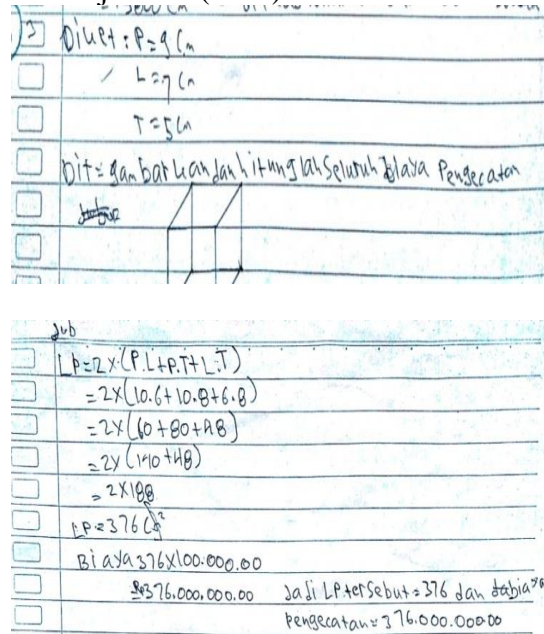 3 Diket : P = 9 Cm
L = 7 Cm
T = 5 Cm
Dit = gambarkan dan hitunglah Seluruh Biaya Pengecatan
Jwb
LP = 2 x (P.L + P.T + L.T)
= 2 x (10.6 + 10.8 + 6.8)
= 2 x (60 + 80 + 48)
= 2 x (140 + 48)
= 2 x 188
LP = 376 Cm²
Biaya 376 x 100.000.00
Rp376.000.000.00 Jadi LP tersebut = 376 dan
Pengecatan = 376.000.000.00